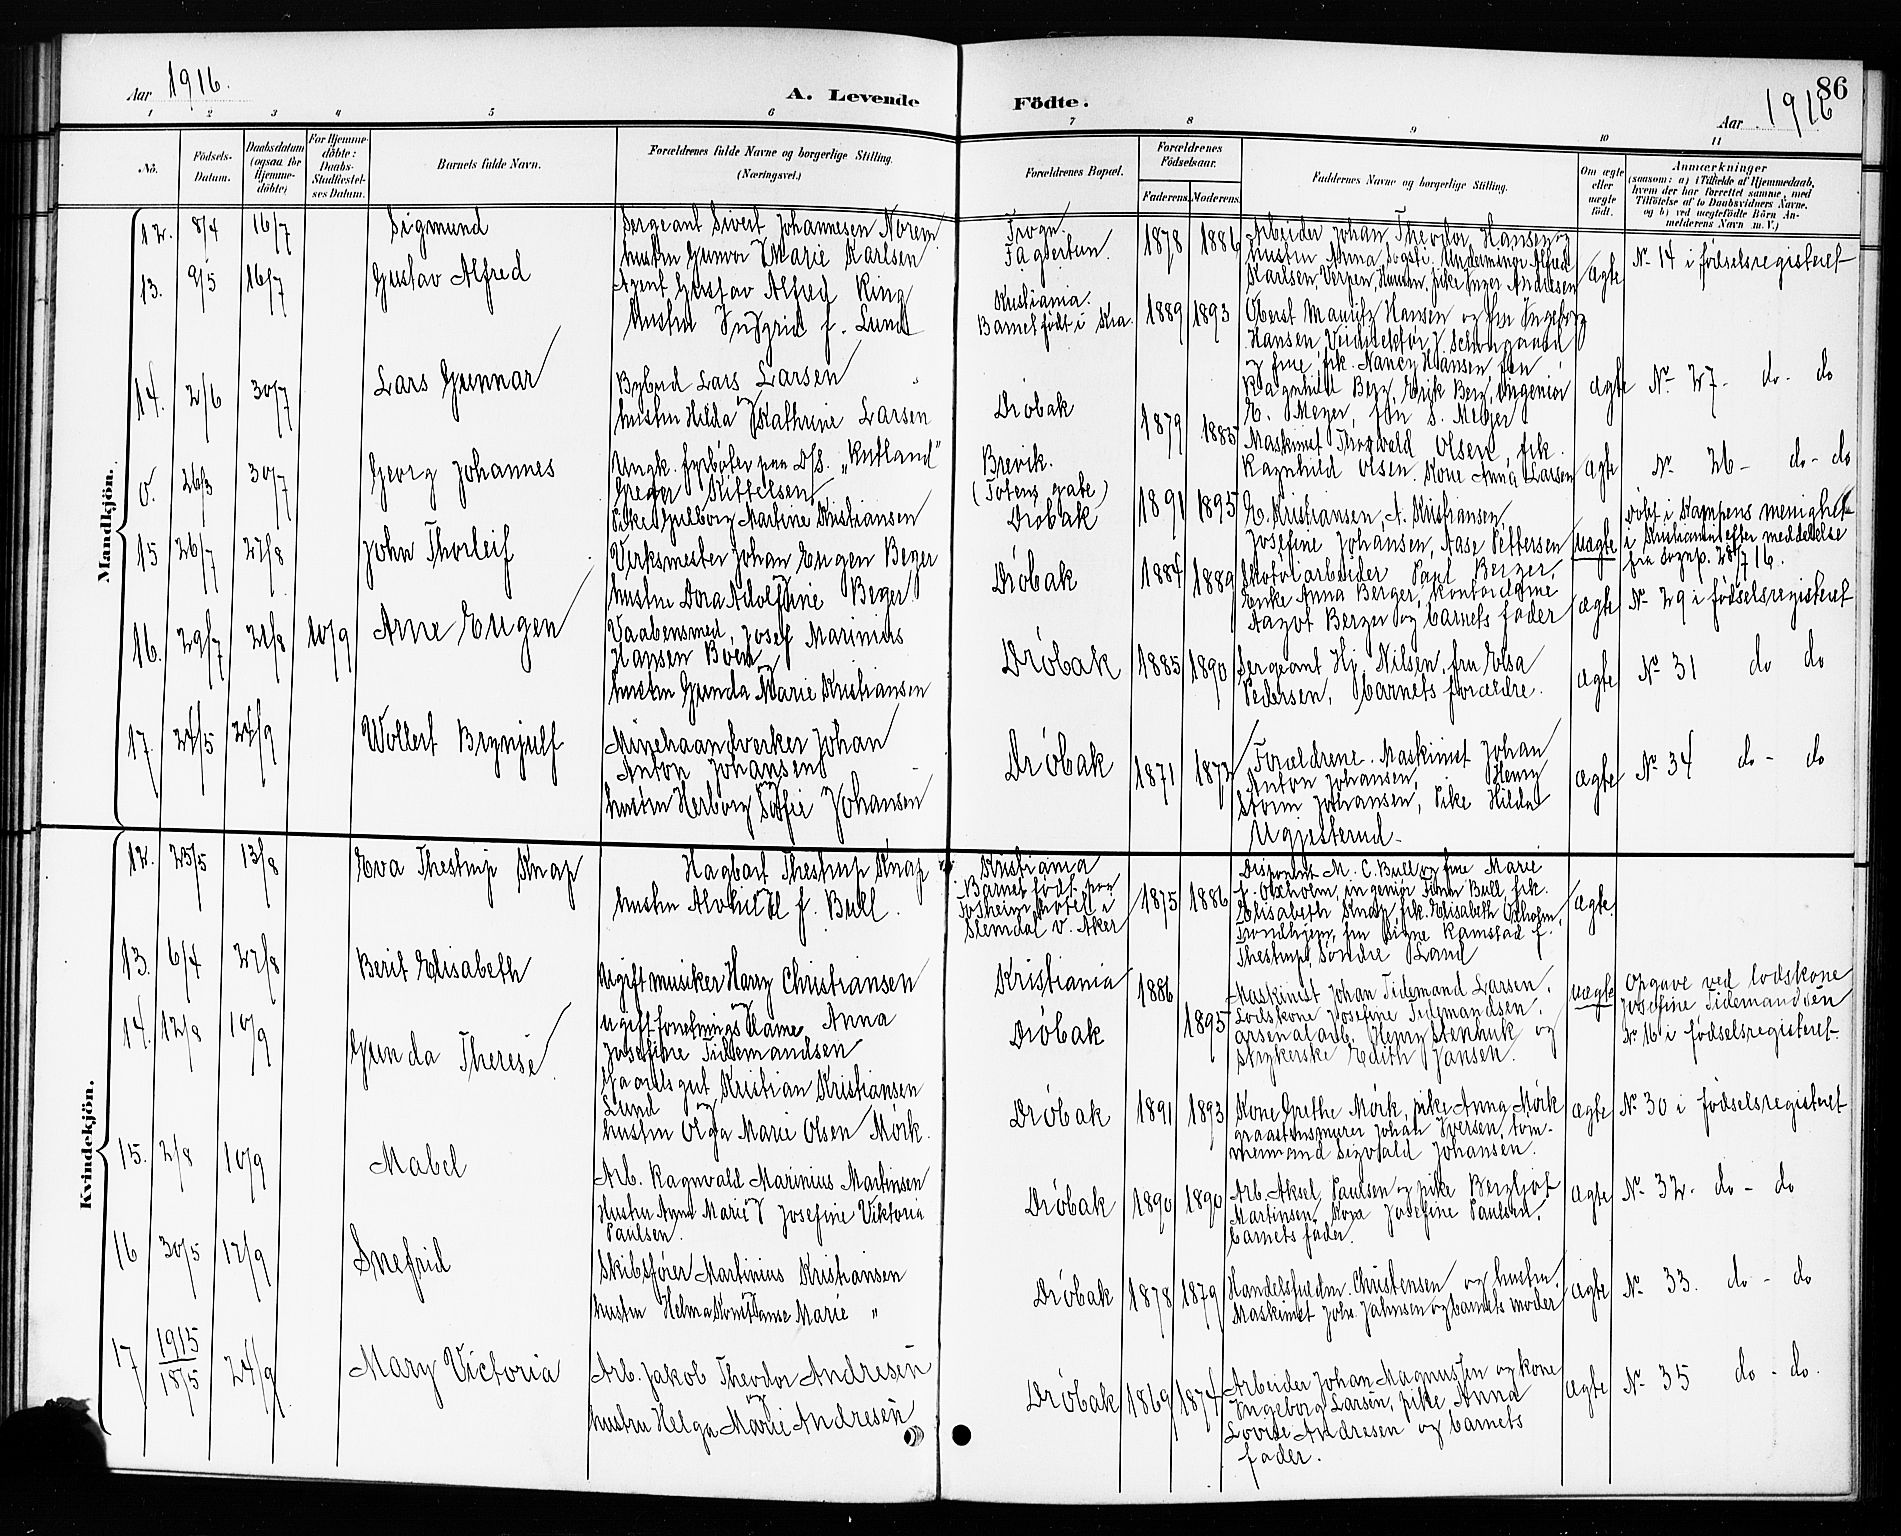 Aar 1916.
A. Levende Födte.
86
Aar 1916
1 2 3 4 5 6 7 8 9 10 11
No.
Födsels-Datum.
Daabsdatum (ogsaa for Hjemme-döbte)
For Hjemme-döbte: Daabs-Stadfæstel-ses Datum.
Barnets fulde Navn.
Forældrenes fulde Navne og borgerlige Stilling. (Næringsvei.)
Forældrenes Bopæl.
Forældrenes Födselsaar.
Faderens. Moderens.
Faddernes Navne og borgerlige Stilling.
Om ægte eller uægte födt.
Anmærkninger
(saasom: a) i Tilfælde af Hjemmedaab, hvem der har forrettet samme, med Tilföielse af to Daabsvidners Navne, og b) ved uægtefödte Börn An-melderens Navn m. V.)
Mandkjön.
12. 8/4 16/7 Sigmund
Sergeant Sivert Johannesen Norem
hustru Gunvor Marie Karlsen
Frogn.
1878 1886
Arbeider Johan Theodor Hansen og
hustru Anna, Underminør Alfred
Karlsen, pike Inger Andresen
ægte
No 14 i fødselsregisteret
13. 9/5 16/7 Gustav Alfred
Agent Gustav Alfred Ring
hustru Ingrid f. Lund
Kristiania.
Barnet født i Kra.
1889 1893
Oberst Mauritz Hansen og fru Ingeborg
Hansen, J. Schougaard
og frue, frk. Nancy Hansen, fru
Ragnhild Berg, Erik Berg, ingeniør
E. Meyer, fru S. Meyer
ægte
No 27 - do - do
14. 2/6 30/7 Lars Gunnar
Bybud Lars Larsen
hustru Hilda Kathrine Larsen
Drøbak
1879 1885
Maskinist Thorvald Olsen, frk.
Ragnhild Olsen. Kone Anna Larsen
ægte
No 26 - do - do
0. 26/3 30/7 Georg Johannes
Ungk. fyrbøter paa D/S. "Rutland"
Greger Kittelsen
Pike Gulborg Martine Kristiansen
Brevik.
(Totens gate)
Drøbak
1891 1895
E. Kristiansen, A. Kristiansen,
Josefine Johansen, Aase Pettersen
uægte
Døbt i Kampens menighet
i Kristiania efter meddelelse
fra sognp. 28/7 16.
15 26/7 27/8 John Thorleif
Verksmester Johan Eugen Berger
hustru Dora Adolfine Berger
Drøbak
1884 1889
Skotøiarbeider Paul Berger,
Enke Anna Berger, kontordame
Aagot Berger og barnets fader
ægte
No 29 i fødselsregisteret
16. 29/7 21/8 10/9 Arne Eugen
Vaabensmed, Josef Marinius
Hansen Boen
hustru Gunda Marie Kristiansen
Drøbak
1885 1890
Sergeant Hj. Nilsen, fru Elsa
Pedersen, barnets forældre.
ægte
No 31 do do
17. 24/5 24/9 Wollert Brynjulf
Minehaandverker Johan
Anton Johansen
hustru Herborg Sofie Johansen
Drøbak
1871 1873
Forældrene. Maskinist Johan
Anton Johansen, Henry
Storm Johansen, Pike Hilda
Ugjesterud.
ægte
No 34 do - do
Kvindekjön.
12. 25/5 13/8 Eva Thestrup Knap
Hagbart Thestrup Knap
hustru Alvhild f. Bull.
Kristiania
Barnet født paa
Slemdal v. Aker
1875 1886
Disponent M. C. Bull og frue Marie
f. Oxholm, ingeniør Bull, frk.
Elisabeth Knap, frk. Elisabeth Oxholm,
Trondhjem, fru Signe Ramstad f.
Thestrup, Søndre Land
ægte
13. 6/4 27/8 Berit Elisabeth
Ugift musiker Harry Christiansen
ugift forretnings dame Anna
Josefine Tidemandsen
Kristiania
Drøbak
1886
1895
Maskinist Johan Tidemand Larsen,
Lodskone Josefine Tidemandsen,
arsenalarb. Henry Stenhuk og
Strykerske Edith Jansen.
uægte
Opgave ved lodskone
Josefine Tidemandsen
No 16 i fødselsregisteret
14. 12/8 10/9 Gunda Therese
Gaardsgut Kristian Kristiansen
Lund
hustru Olga Marie Olsen Mørk.
Drøbak
1891 1893
Kone Grethe Mørk, pike Anna Mørk
graastensmurer Johan Iversen, tøm-
mermand Sigvald Johansen.
ægte
No 30 i fødselsregisteret
15. 2/8 10/9 Mabel
Arb. Ragnvald Marinius Martinsen
Hustru Anna Marie Josefine Viktoria
Paulsen.
Drøbak
1890 1890
Arb. Aksel Paulsen og pike Bergljot
Martinsen, Kona Josefine Paulsen,
barnets fader.
ægte
No 32. do - do
16 30/5 17/9 Snefrid
Skibsfører Martinius Kristiansen
hustru Helma Konstanse Marie "
Drøbak
1878 1879
Handelsfuldm. Christensen og hustru.
Maskinist Johs. Jahnsen og barnets moder
ægte
No 33. do - do
17 1915 18/5 24/9 Mary Victoria
Arb. Jakob Theodor Andresen
hustru Helga Marie Andresen
Drøbak
1869 1874
Arbeider Johan Magnussen og kone
Ingeborg Larsen, pike Anna
Lovise Andresen og barnets
fader.
ægte
No 35 do - do.